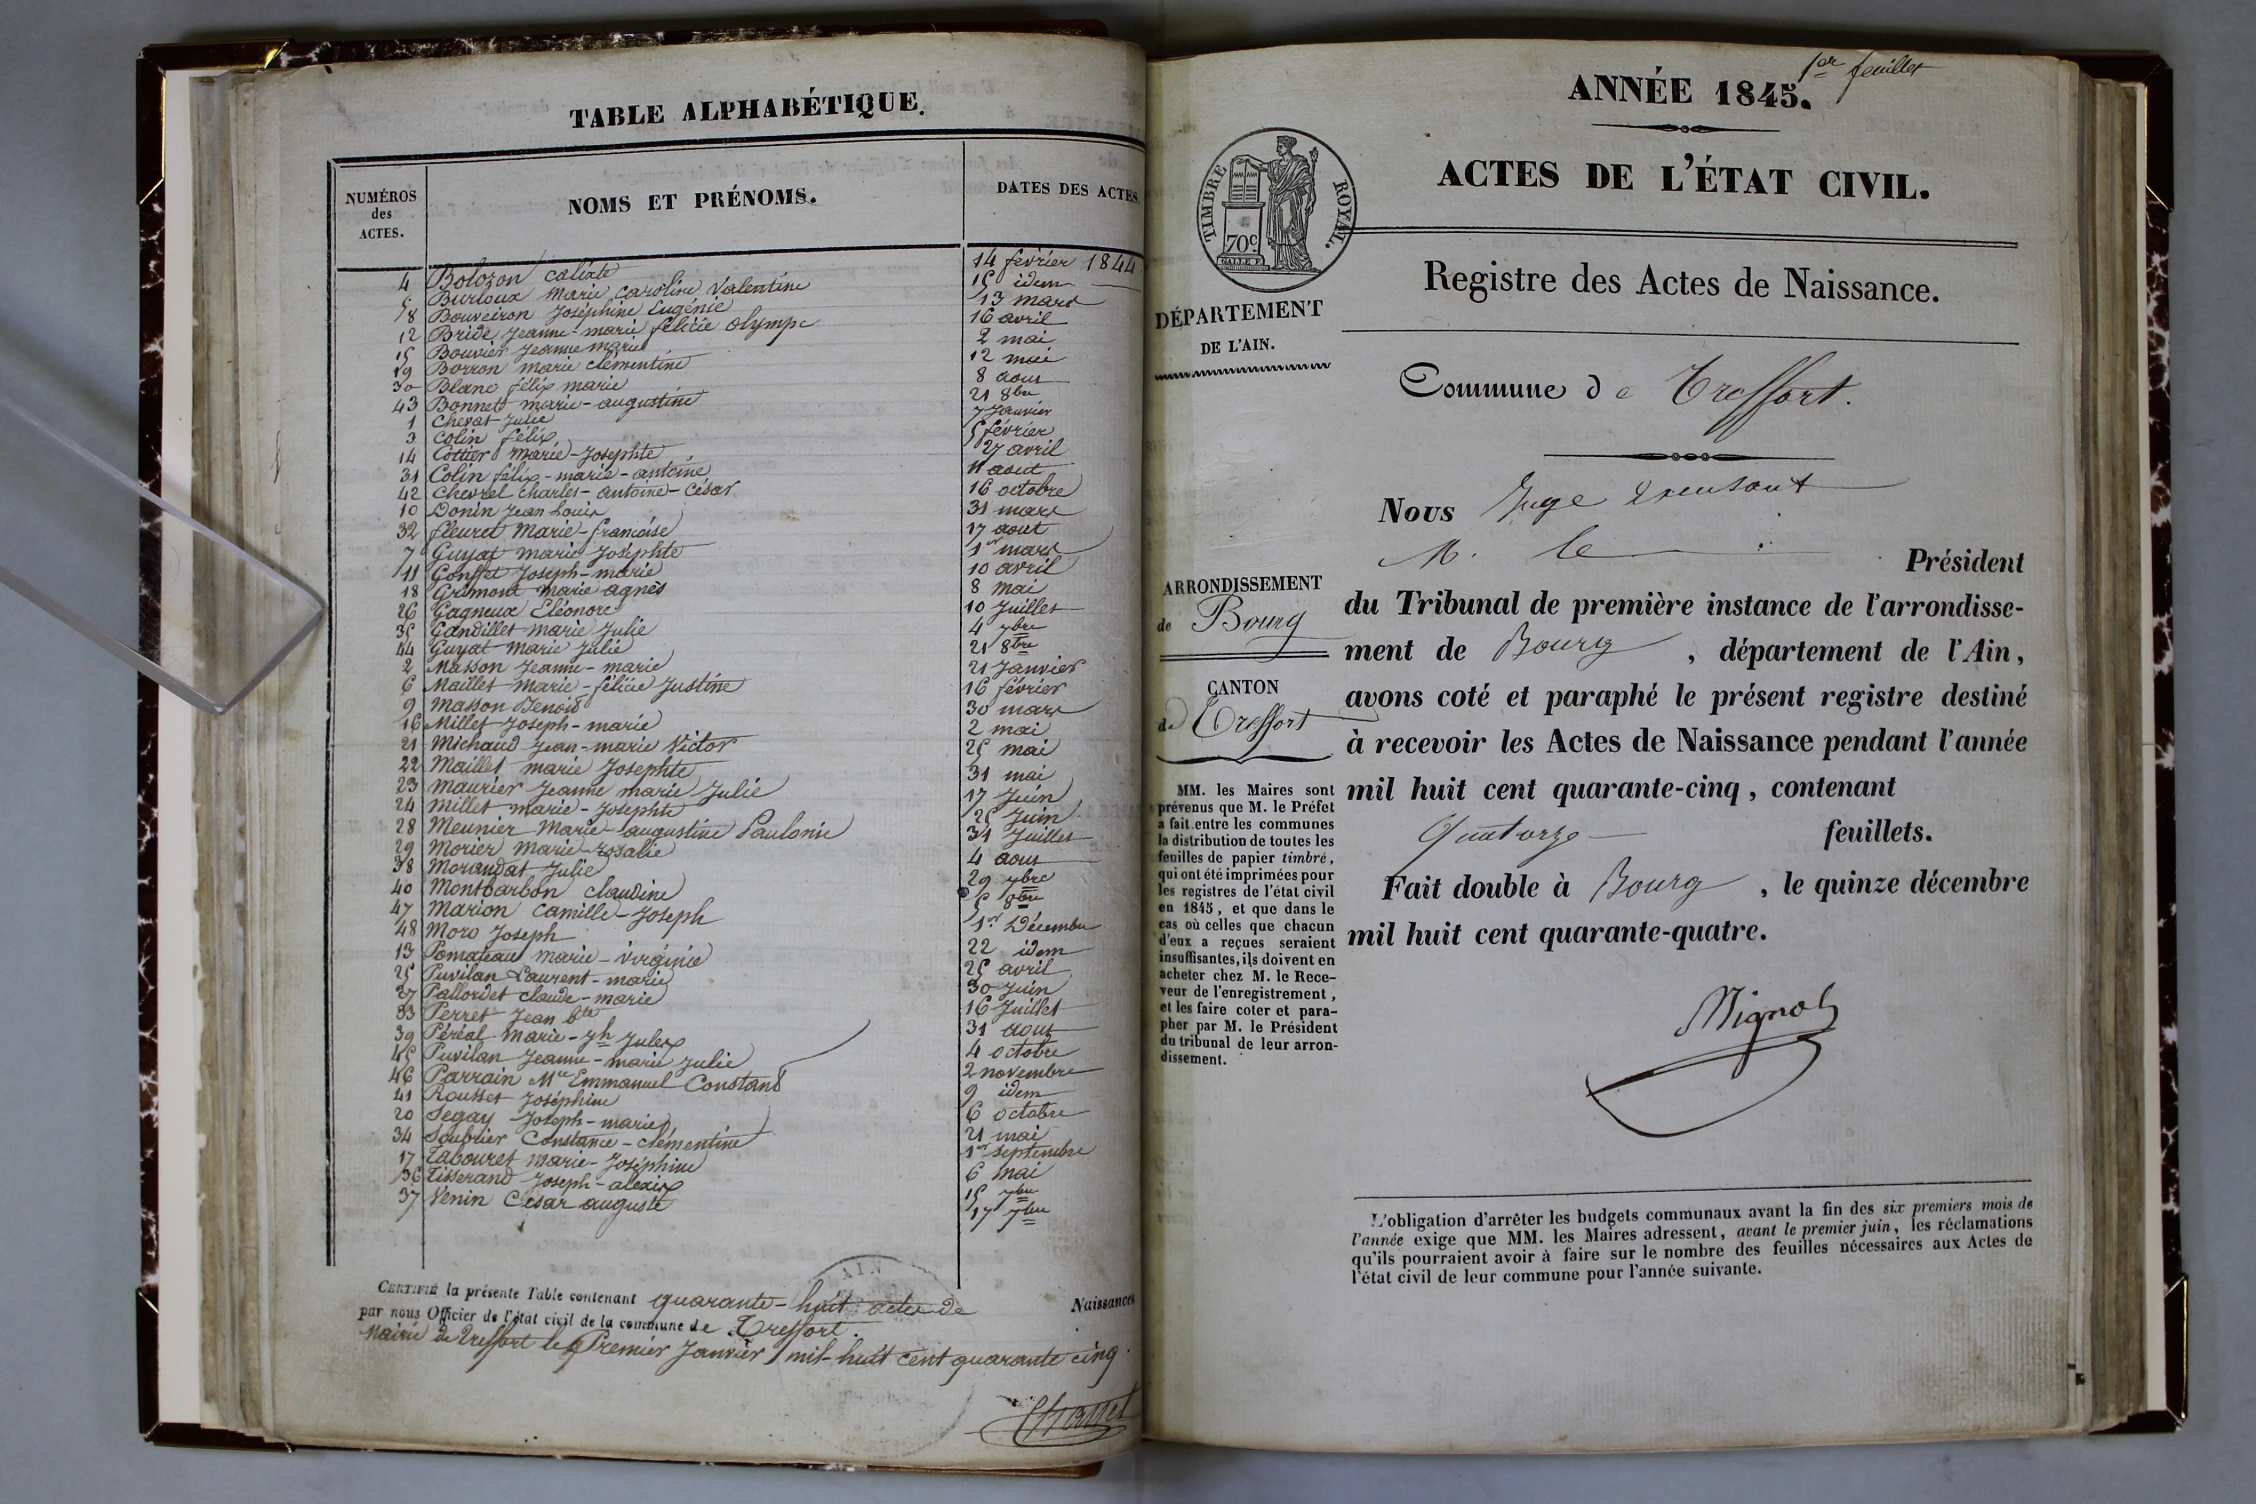 TABLE ALPHABÉTIQUE.
NUMÉROS des ACTES. NOMS ET PRÉNOMS. DATES DES ACTES.
4 Bolozon calixte 14 février 1844
5 Burloux Marie Caroline Valentine 15 idem
8 Bouveiron Joséphine Eugénie 13 mars
12 Bride Jeanne-marie félicie olympe 16 avril
15 Bouvier Jeanne marie 2 mai
19 Borron marie clémentine 12 mai
30 Blanc félix marie 8 aout
43 Bonnet marie-augustine 21 8bre
1 Chevat Julie 7 Janvier
3 Colin félix 5 février
14 Cottier marie-Josephte 27 avril
31 Colin félix-marie-antoine 11 aout
42 Chevrel Charles-antoine-César 16 octobre
10 Donin Jean Louis 31 mars
32 fleuret Marie-françoise 17 aout
7 Guyat marie Joséphte 1er mars
11 Gonffet Joseph-marie 10 avril
18 Grimont marie agnès 8 mai
26 Gagneux Eléonore 10 Juillet
35 Gandillet marie Julie 4 7bre
44 Guyat marie Julie 21 8bre
2 Masson Jeanne-marie 21 Janvier
6 Maillet marie-félicie Justine 16 février
9 Masson Benoit 30 mars
16 Millet Joseph-marie 2 mai
21 Michaud Jean-marie Victor 25 mai
22 Maillet marie Josephte 31 mai
23 maurier Jeanne marie Julie 17 Juin
24 millet marie-Josephte 25 Juin
28 Meunier Marie-augustine Paulonie 31 Juillet
29 Morier marie-rosalie 4 aout
38 Morandat Julie 29 7bre
40 Montbarbon claudine 5 8bre
47 Marion Camille-Joseph 1er Décembre
48 Moro Joseph 22 idem
13 Pomateau marie-virginie 25 avril
25 Puvilan Laurent-marie 30 Juin
27 Pallordet claude-marie 16 Juillet
33 Perret Jean bte 31 aout
39 Péréal marie-Jh Jules 4 octobre
45 Puvilan Jeanne-marie Julie 2 novembre
46 Parrain Mie Emmanuel Constant 9 idem
41 Rousset Joséphine 6 octobre
20 Segay Joseph-marie 21 mai
34 Soublier Constance-clémentine 1er septembre
17 Tabouret marie-Joséphine 6 mai
36 Tisserand Joseph-alexis 15 7bre
37 Venin César auguste 17 7bre
CERTIFIÉ la présente Table contenant quarante-huit actes de Naissances
par nous Officier de l'état civil de la commune de Treffort.
Mairie de Treffort le Premier Janvier mil-huit cent quarante cinq.
AIN
1er feuillet
ANNÉE 1845.
ACTES DE L'ÉTAT CIVIL.
TIMBRE ROYAL.
70c.
Registre des Actes de Naissance.
DÉPARTEMENT
DE L'AIN.
Commune de Treffort.
Nous Juge
M. le Président
du Tribunal de première instance de l'arrondisse-
ment de Bourg, département de l'Ain,
avons coté et paraphé le présent registre destiné
à recevoir les Actes de Naissance pendant l'année
mil huit cent quarante-cinq, contenant
Quatorze feuillets.
Fait double à Bourg, le quinze décembre
mil huit cent quarante-quatre.
Mignot
ARRONDISSEMENT
de Bourg
CANTON
de Treffort
MM. les Maires sont
prévenus que M. le Préfet
a fait entre les communes
la distribution de toutes les
feuilles de papier timbré,
qui ont été imprimées pour
les registres de l'état civil
en 1845, et que dans le
cas où celles que chacun
d'eux a reçues seraient
insuffisantes, ils doivent en
acheter chez M. le Rece-
veur de l'enregistrement,
et les faire coter et para-
pher par M. le Président
du tribunal de leur arron-
dissement.
L'obligation d'arrêter les budgets communaux avant la fin des six premiers mois de
l'année exige que MM. les Maires adressent, avant le premier juin, les réclamations
qu'ils pourraient avoir à faire sur le nombre des feuilles nécessaires aux Actes de
l'état civil de leur commune pour l'année suivante.